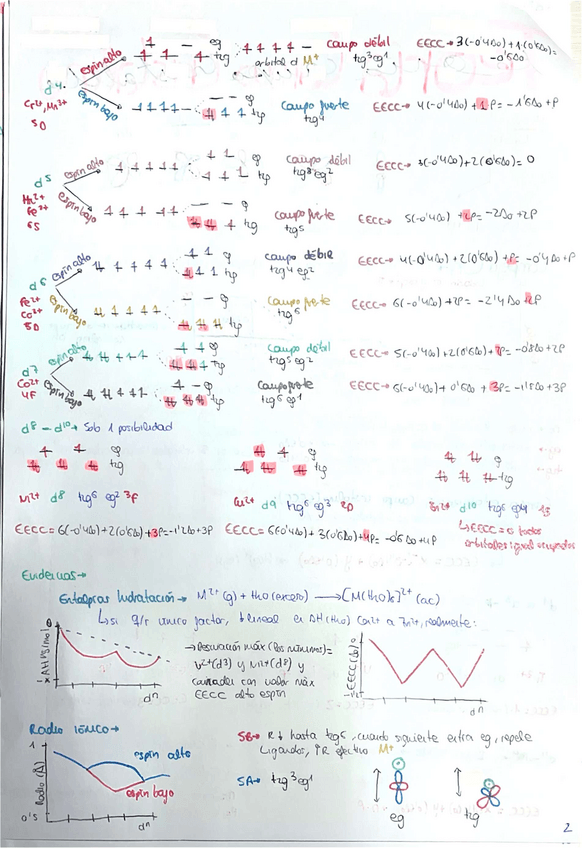 espín alto eg t2g orbital d M+ campo débil t2g³eg¹ EECC→ 3(-0'4Δo)+1·(0'6Δo)= -0'6Δo
d4
Cr2+, Mn3+
5D
espín bajo eg t2g campo fuerte t2g4 EECC→ 4(-0'4Δo)+1P=-1'6Δo+P
espín alto eg t2g campo débil t2g³eg² EECC→ 3(-0'4Δo)+2(0'6Δo)=0
d5
Mn2+
Fe3+
6S
espín bajo eg t2g campo fuerte t2g5 EECC→ 5(-0'4Δo)+2P=-2Δo+2P
espín alto eg t2g campo débil t2g4eg2 EECC→ 4(-0'4Δo)+2(0'6Δo)+P=-0'4Δo+P
d6
Fe2+
Co3+
5D
espín bajo eg t2g campo fuerte t2g6 EECC→ 6(-0'4Δo)+2P=-2'4Δo+2P
espín alto eg t2g campo débil t2g5eg2 EECC→ 5(-0'4Δo)+2(0'6Δo)+ =-0'8Δo+2P
d7
Co2+
4F
espín bajo eg t2g campo fuerte t2g6eg1 EECC→ 6(-0'4Δo)+0'6Δo+3P=-1'8Δo+3P
d8-d10→ Solo 1 posibilidad
eg eg eg
t2g t2g t2g
Ni2+ d8 t2g6 eg2 3F Cu2+ d9 t2g6 eg3 2D Zn2+ d10 t2g6 eg4 1S
EECC=6(-0'4Δo)+2(0'6Δo)+3P=-1'2Δo+3P EECC=6(-0'4Δo)+3(0'6Δo)+4P=-0'6Δo+4P ↳EECC=0 todos
orbitales igual ocupados
Evidencias→
Entalpías hidratación→ M2+(g)+H2O(exceso)→[M(H2O)6]2+(ac)
↳si q/r único factor, lineal en ΔH(H2O) Ca2+ a Zn2+, realmente:
→Desviación máx (los mínimos)=
V2+(d3) y Ni2+(d8) y
coinciden con valor máx
EECC alto espín
dn
EECC(Δo)
dn
Radio iónico→
1
Radio (Å)
0'5
espín alto
espín bajo
dn
SB→ R↓ hasta t2g6, cuando siguiente entra eg, repele
ligandos, ↑R efectivo M+
SA→ t2g³eg¹
eg t2g
2